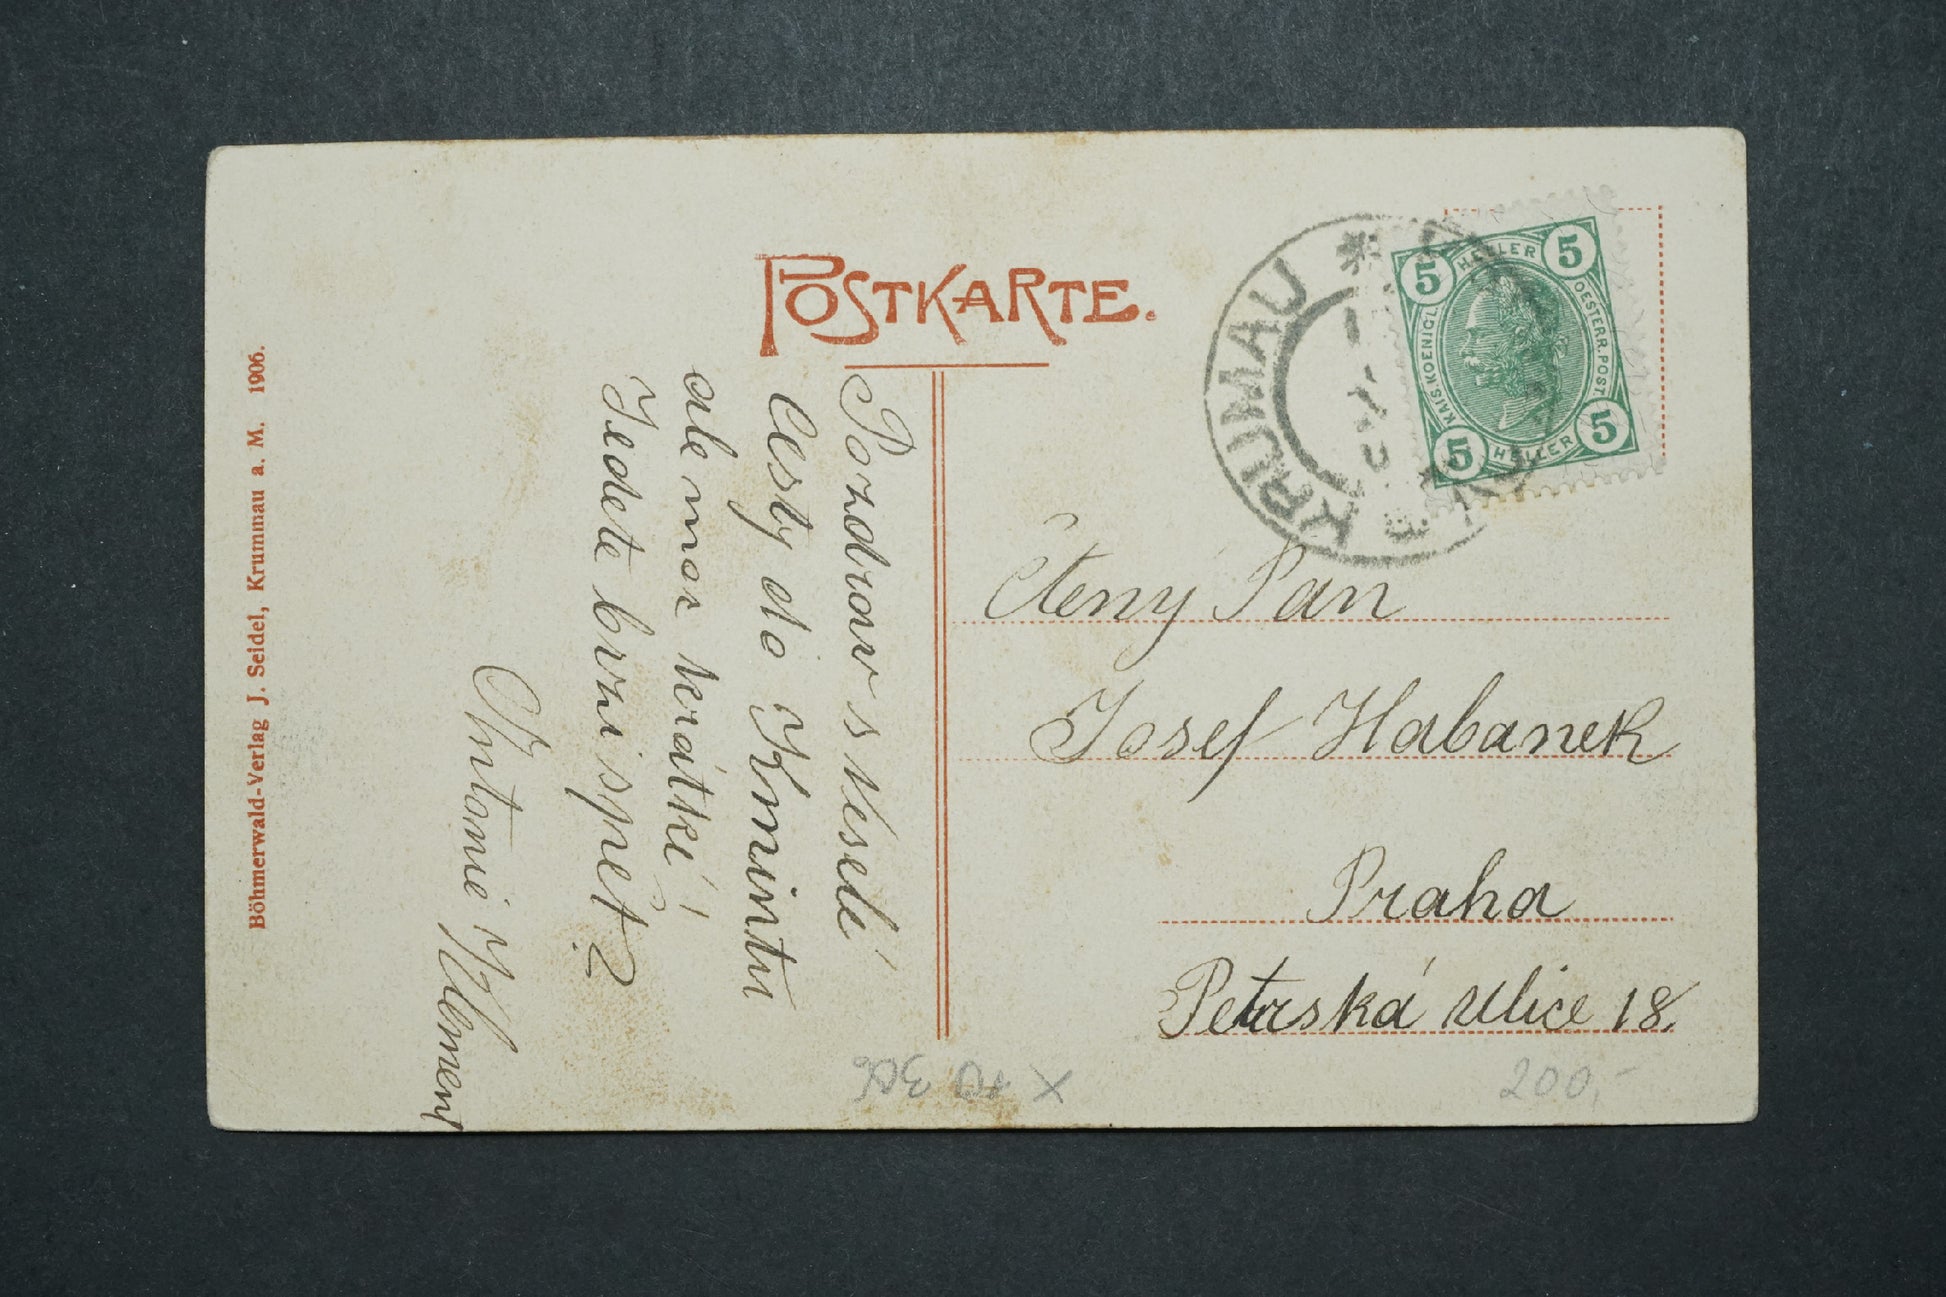 POSTKARTE.
Böhmerwald-Verlag J. Seidel, Krummau a. M. 1906.
KRUMAU
5 HELLER 5
KAIS. KOENIGL. OESTERR. POST
5 HELLER 5
Pozdrav s veselé
Cesty do Kmintu
ale moc krátké!
Jedete brzi spět?
Antonie Klement
Ctený Pan
Josef Habanek
Praha
Petrská Ulice 18.
x
200,-